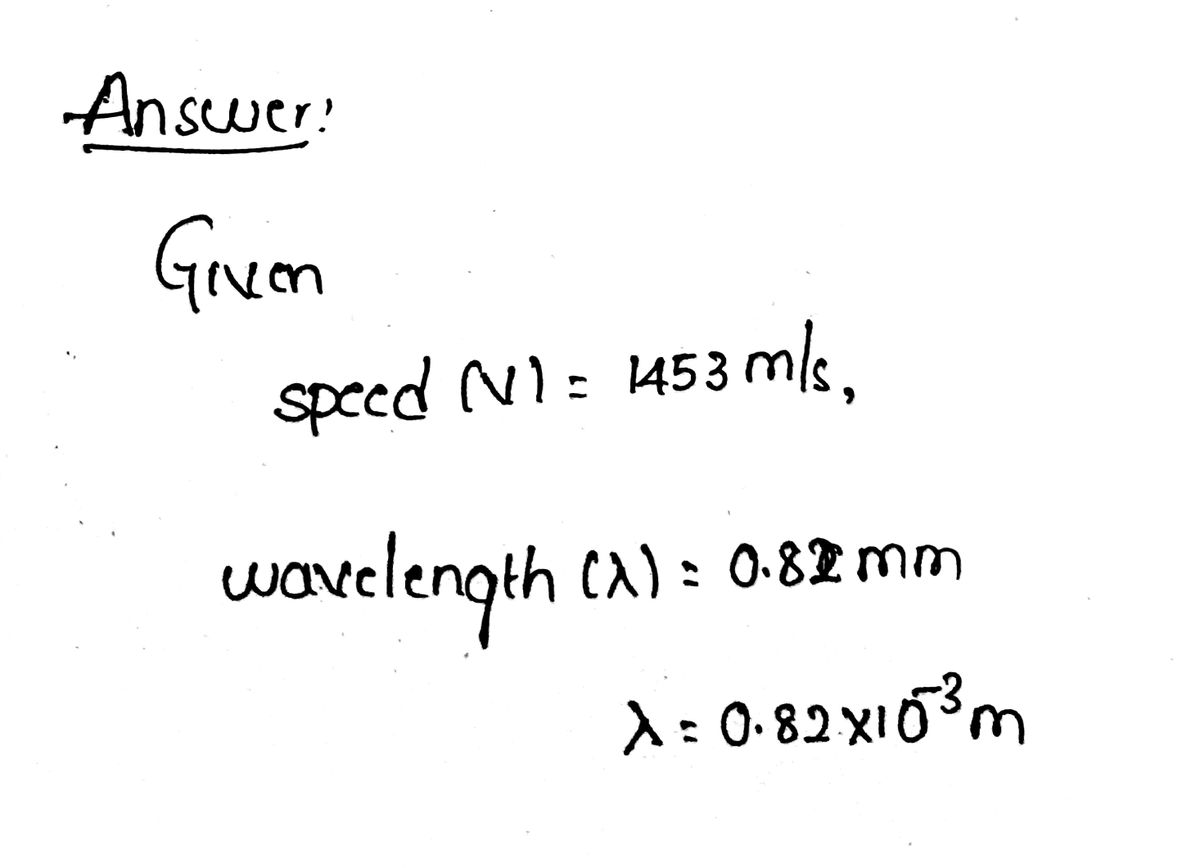 Answer:
Given
speed (V) = 1453 m/s,
wavelength (λ) = 0.82 mm
λ = 0.82 × 10⁻³ m